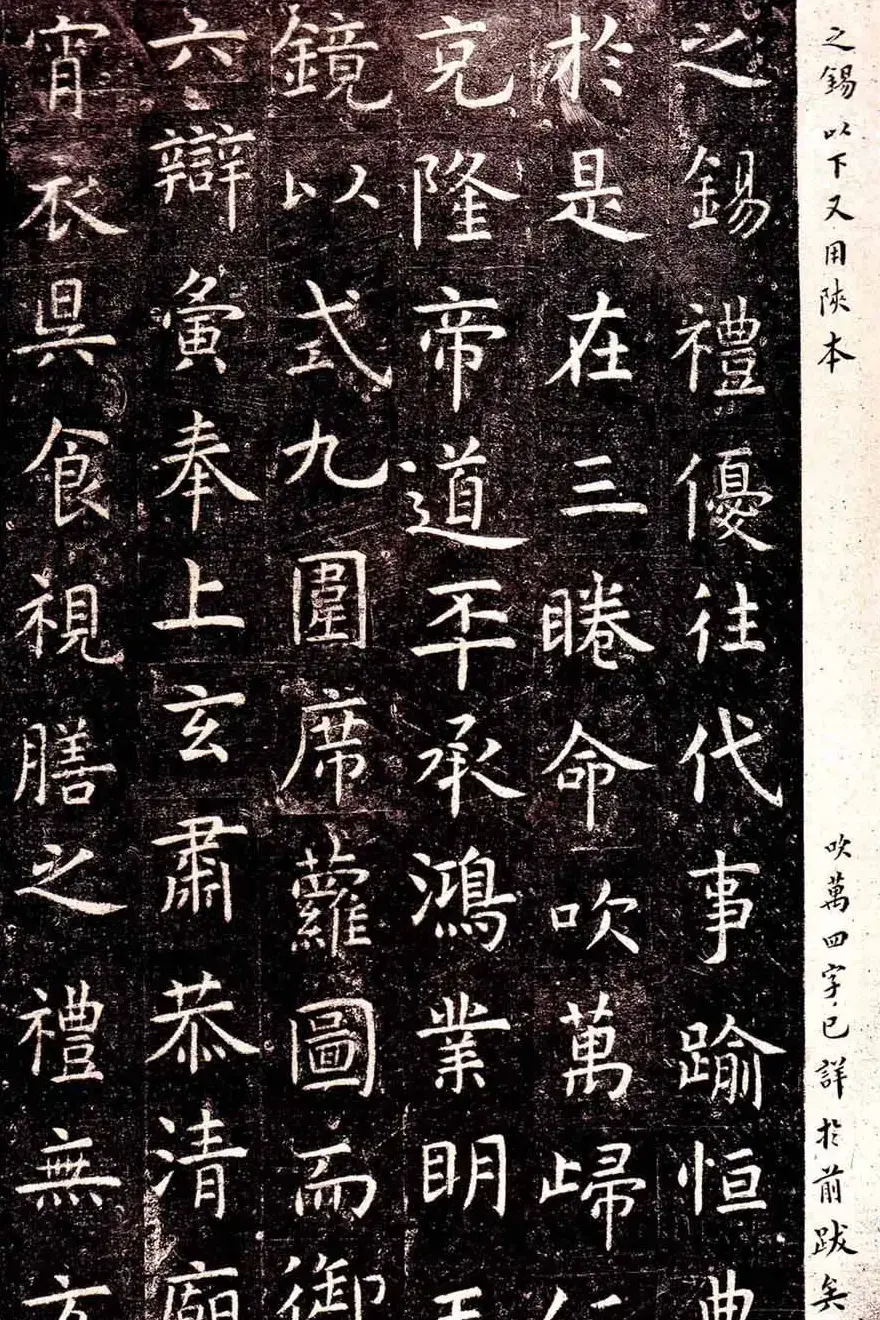 之錫以下又用陝本
吹萬四字已詳於前跋矣
之錫禮優往代事踰恒典
於是在三睠命吹萬歸仁
克隆帝道丕承鴻業明玉
鏡以式九圍席蘿圖而御
六辯寅奉上玄肅恭清廟
宵衣昃食視膳之禮無方